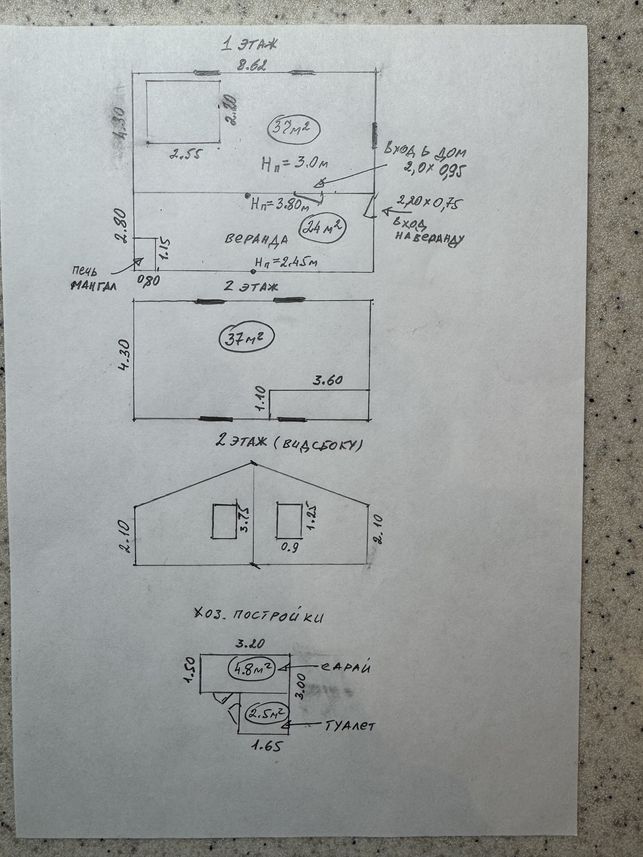 1 ЭТАЖ
8.62
4.30
2.20
37м²
2.55
Нп = 3.0м
ВХОД В ДОМ
2,0 х 0,95
Нп=3.80м
2,20 х 0,75
24м²
ВХОД
НА ВЕРАНДУ
2.80
ВЕРАНДА
1.15
ПЕЧЬ
МАНГАЛ
0,80
Нп=2.45м
2 ЭТАЖ
37м²
4.30
3.60
1.10
2 ЭТАЖ (ВИД СБОКУ)
2.10
3.75
1.25
0.9
2.10
ХОЗ. ПОСТРОЙКИ
3.20
1.50
4.8м²
САРАЙ
3.00
2.5м²
ТУАЛЕТ
1.65